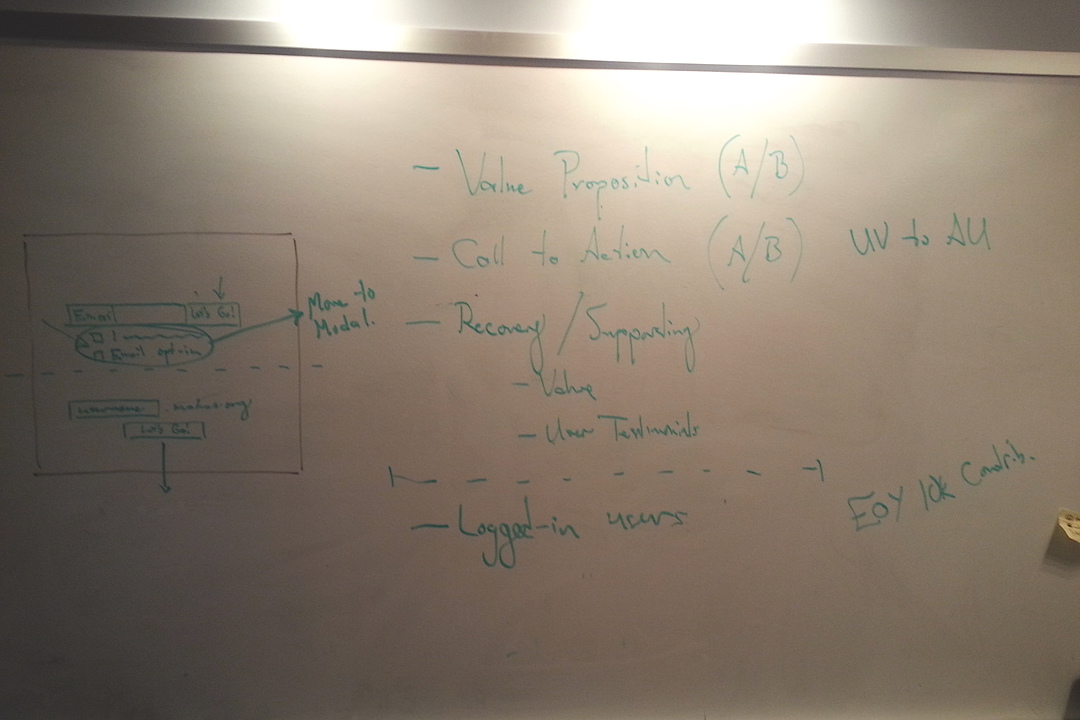 Email Let's Go!
Email opt-in
Move to
Modal.
username .makes.org
Let's Go!
- Value Proposition (A/B)
- Call to Action (A/B) UV to AU
- Recovery / Supporting
- Value
- User Testimonials
- Logged-in users
EOY 10k Contrib.